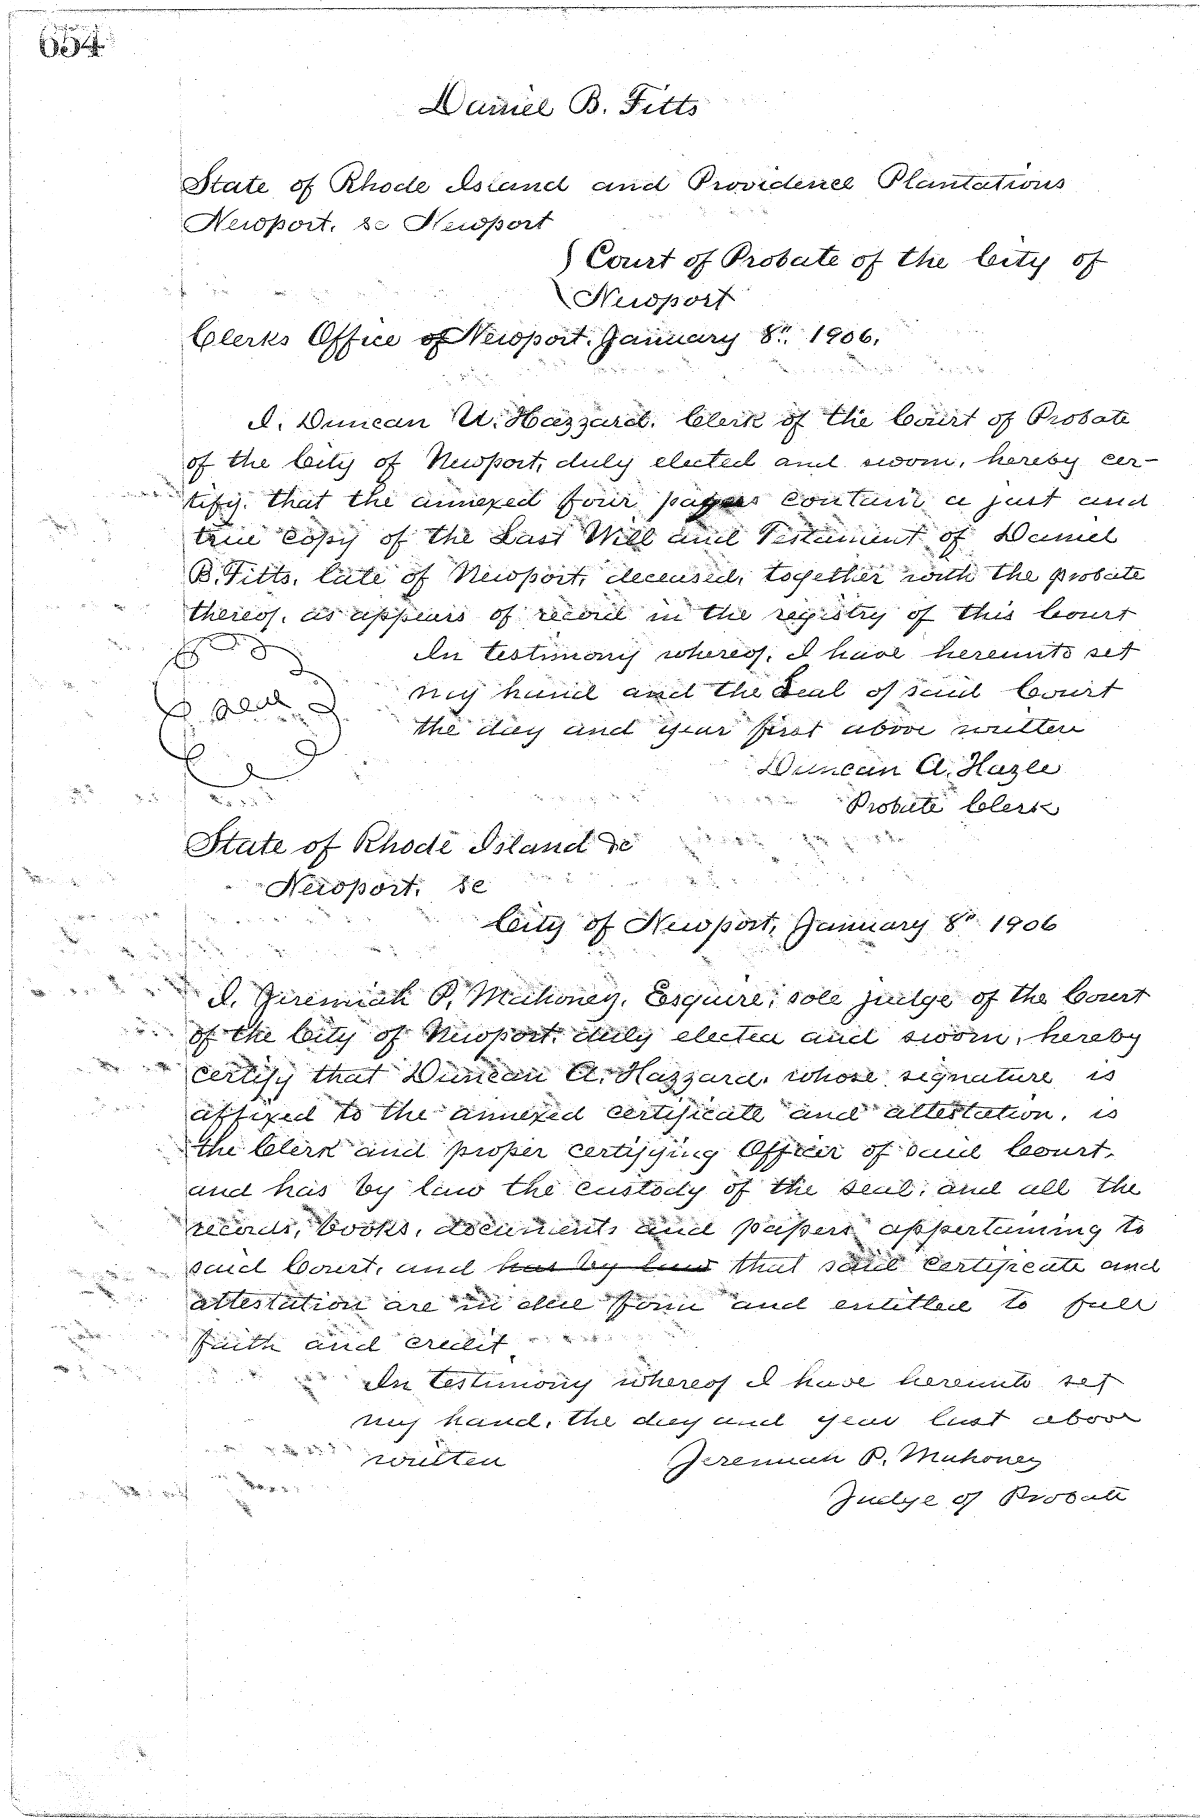 654
Daniel B. Fitts
State of Rhode Island and Providence Plantations
Newport. sc Newport
Court of Probate of the City of
Newport
Clerks Office of Newport. January 8". 1906.
I, Duncan A. Hazzard. Clerk of the Court of Probate
of the City of Newport, duly elected and sworn, hereby cer-
tify. that the annexed four pages contain a just and
true copy of the Last Will and Testament of Daniel
B. Fitts, late of Newport, deceased, together with the probate
thereof, as appears of record in the registry of this Court
In testimony whereof, I have hereunto set
Seal
my hand and the Seal of said Court
the day and year first above written
Duncan A. Hazle
Probate Clerk
State of Rhode Island &c
Newport. sc
City of Newport, January 8" 1906
I, Jeremiah P. Mahoney, Esquire, sole judge of the Court
of the City of Newport. duly elected and sworn, hereby
certify that Duncan A. Hazzard. whose signature is
affixed to the annexed certificate and attestation, is
the Clerk and proper certifying Officer of said Court.
and has by law the custody of the seal, and all the
records, books, documents and papers appertaining to
said Court, and has by law that said certificate and
attestation are in due form and entitled to full
faith and credit.
In testimony whereof I have hereunto set
my hand, the day and year last above
written
Jeremiah P. Mahoney
Judge of Probate